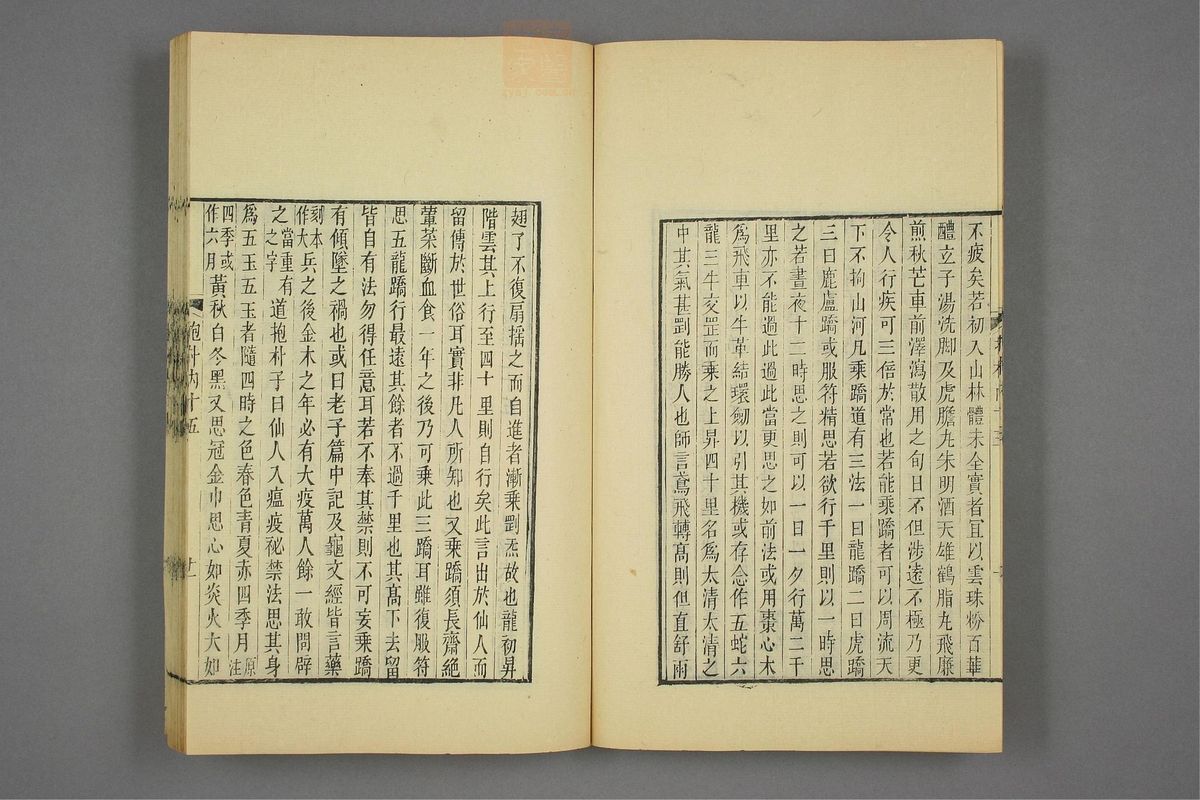 不疲矣若初入山林體未全實者宜以雲珠粉百華
醴立子湯洗脚及虎膽丸朱明酒天雄鶴脂丸飛廉
煎秋芒車前澤瀉散用之旬日不但涉遠不極乃更
令人行疾可三倍於常也若能乘蹻者可以周流天
下不拘山河凡乘蹻道有三法一曰龍蹻二曰虎蹻
三曰鹿盧蹻或服符精思若欲行千里則以一時思
之若晝夜十二時思之則可以一日一夕行萬二千
里亦不能過此過此當更思之如前法或用棗心木
爲飛車以牛革結環劒以引其機或存念作五蛇六
龍三牛交罡而乘之上昇四十里名爲太清太清之
中其氣甚剛能勝人也師言鳶飛轉髙則但直舒兩
翅了不復扇搖之而自進者漸乘剛炁故也龍初昇
階雲其上行至四十里則自行矣此言出於仙人而
留傳於世俗耳實非凡人所知也又乘蹻須長齋絕
葷菜斷血食一年之後乃可乘此三蹻耳雖復服符
思五龍蹻行最遠其餘者不過千里也其髙下去留
皆自有法勿得任意耳若不奉其禁則不可妄乘蹻
有傾墜之禍也或曰老子篇中記及龜文經皆言藥
刻本作大兵之後金木之年必有大疫萬人餘一敢問辟
之當重有之字道抱朴子曰仙人入瘟疫祕禁法思其身
爲五玉五玉者隨四時之色春色青夏赤四季月原注
四季或作六月黃秋白冬黑又思冠金巾思心如炎火大如
抱朴內十五
十一